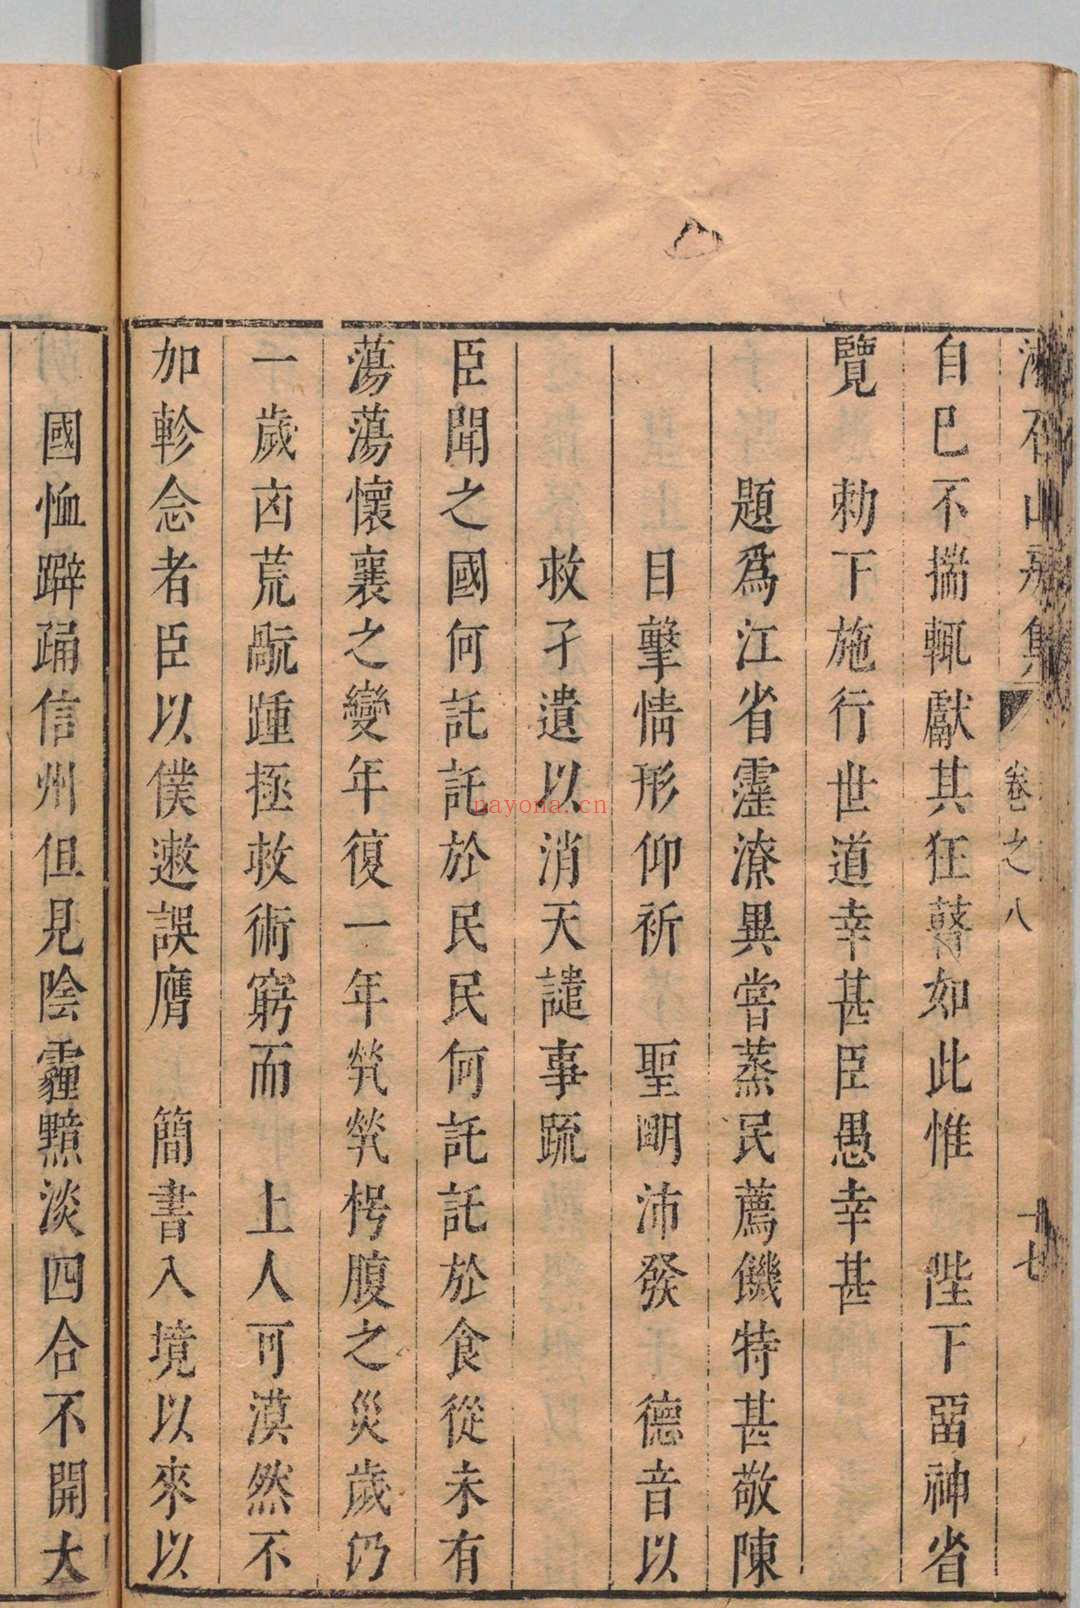 石山房集 卷之八 十七
自巳不揣輒獻其狂瞽如此惟 陛下畱神省
覽 勅下施行世道幸甚臣愚幸甚
題爲江省霪潦異嘗蒸民薦饑特甚敬陳
目擊情形仰祈 聖明沛發 德音以
救孑遺以消天譴事疏
臣聞之國何託託於民民何託託於食從未有
蕩蕩懷襄之變年復一年煢煢枵腹之災歲仍
一歲凶荒飈踵拯救術窮而 上人可漠然不
加軫念者臣以僕遬誤膺 簡書入境以來以
國恤躃踊信州但見陰霾黯淡四合不開大
nayona.cn